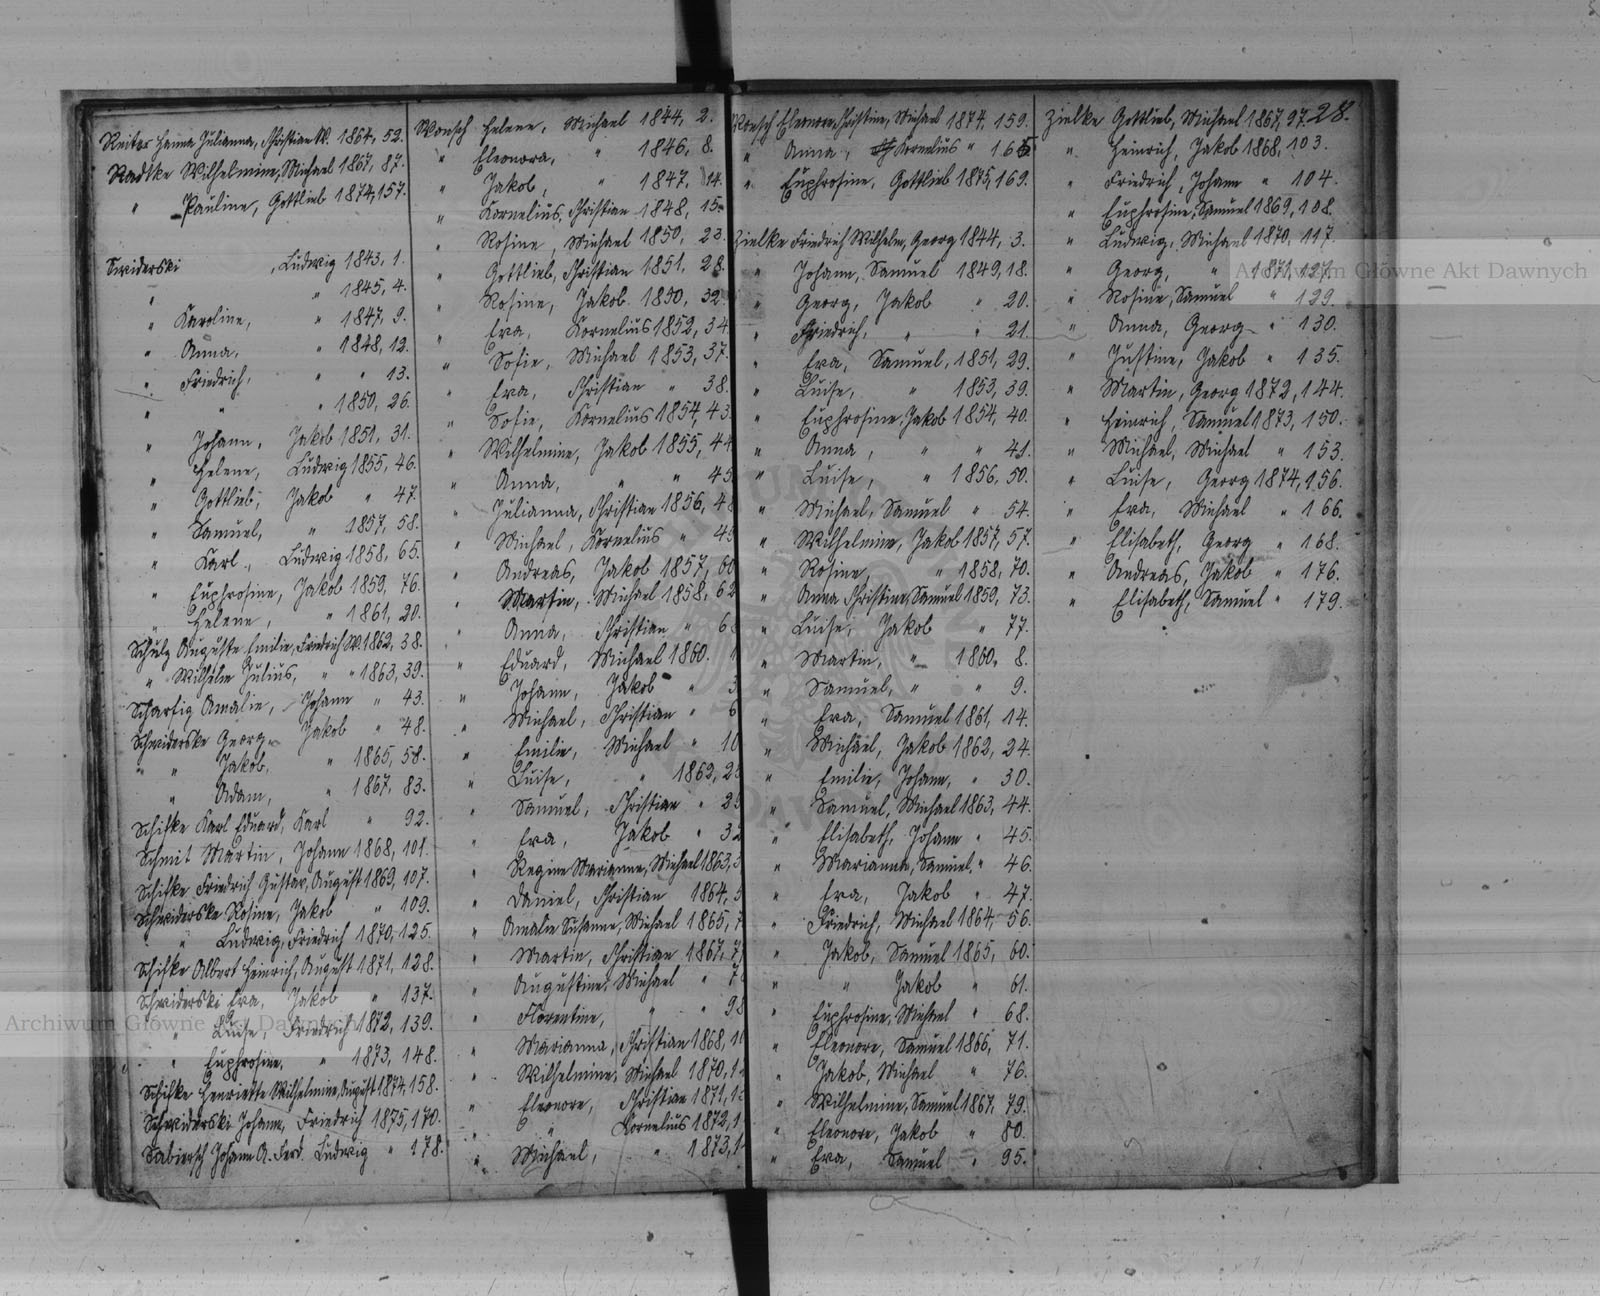 Reiter Hanna Julianna, Christian W. 1864, 52.
Radtke Wilhelmine, Michael 1867, 87.
" Pauline, Gottlieb 1874, 157.
Swiderski , Ludwig 1843, 1.
" " 1845, 4.
" Karoline, " 1847, 9.
" Anna, " 1848, 12.
" Friedrich, " " 13.
" " " 1850, 26.
" Johann, Jakob 1851, 31.
" Helene, Ludwig 1855, 46.
" Gottlieb, Jakob " 47.
" Samuel, " 1857, 58.
" Karl, Ludwig 1858, 65.
" Euphrosine, Jakob 1859, 76.
" Helene, " 1861, 20.
Schulz Auguste Emilie, Friedrich W. 1862, 38.
" Wilhelm Julius, " " 1863, 39.
Scharfig Amalie, Johann " 43.
Schwiderske Georg, Jakob " 48.
" " Jakob, " 1865, 58.
" Adam, " 1867, 83.
Schifke Karl Eduard, Karl " 92.
Schmit Martin, Johann 1868, 101.
Schifke Friedrich Gustav, August 1869, 107.
Schwiderske Rosine, Jakob " 109.
" Ludwig, Friedrich 1870, 125.
Schifke Albert Heinrich, August 1871, 128.
Schwiderski Eva, Jakob " 137.
" Luise, Friedrich 1872, 139.
" Euphrosine, " 1873, 148.
Schifke Henriette Wilhelmine, August 1874, 158.
Schwiderski Johann, Friedrich 1875, 170.
Sabiersch Johann A. Ferd. Ludwig " 178.
Wonsch Helene, Michael 1844, 2.
" Eleonora, " 1846, 8.
" Jakob, " 1847, 14.
" Kornelius, Christian 1848, 15.
" Rosine, Michael 1850, 23.
" Gottlieb, Christian 1851, 28.
" Rosine, Jakob 1850, 32.
" Eva, Kornelius 1852, 34.
" Sofie, Michael 1853, 37.
" Eva, Christian " 38.
" Sofie, Kornelius 1854, 43.
" Wilhelmine, Jakob 1855, 44
" Anna, " " 45.
" Julianna, Christian 1856, 48
" Michael, Kornelius " 49
" Andreas, Jakob 1857, 60
" Martin, Michael 1858, 62
" Anna, Christian " 6
" Eduard, Michael 1860. 1
" Johann, Jakob " 3
" Michael, Christian " 6
" Emilie, Michael " 10
" Luise, " 1862, 2
" Samuel, Christian " 29
" Eva, Jakob " 32
" Regine Marianne, Michael 1863, 3
" Daniel, Christian 1864, 5
" Amalie Susanne, Michael 1865, 7
" Martin, Christian 1867, 77
" Augustine, Michael " 7
" Florentine, " " 98
" Marianna, Christian 1868, 10
" Wilhelmine, Michael 1870, 1
" Eleonore, Christian 1871, 1
" " Kornelius 1872, 1
" Michael, " 1873, 1
Wonsch Eleonore Christine, Michael 1874, 159.
" Anna, Kornelius " 165
" Euphrosine, Gottlieb 1875, 169.
Zielke Friedrich Wilhelm, Georg 1844, 3.
" Johann, Samuel 1849, 18.
" Georg, Jakob " 20.
" Friedrich, " " 21.
" Eva, Samuel, 1851, 29.
" Luise, " 1853, 39.
" Euphrosine, Jakob 1854, 40.
" Anna, " " 41.
" Luise, " 1856, 50.
" Michael, Samuel " 54.
" Wilhelmine, Jakob 1857, 57.
" Rosine, " 1858, 70.
" Anna Christine, Samuel 1859, 73.
" Luise, Jakob " 77.
" Martin, " 1860, 8.
" Samuel, " " 9.
" Eva, Samuel 1861, 14.
" Michael, Jakob 1862, 24.
" Emilie, Johann, " 30.
" Samuel, Michael 1863, 44.
" Elisabeth, Johann " 45.
" Marianna, Samuel, " 46.
" Eva, Jakob " 47.
" Friedrich, Michael 1864, 56.
" Jakob, Samuel 1865, 60.
" " Jakob " 61.
" Euphrosine, Michael " 68.
" Eleonore, Samuel 1866, 71.
" Jakob, Michael " 76.
" Wilhelmine, Samuel 1867, 79.
" Eleonore, Jakob " 80.
" Eva, Samuel " 95.
28.
Zielke Gottlieb, Michael 1867, 97.
" Heinrich, Jakob 1868, 103.
" Friedrich, Johann " 104.
" Euphrosine, Samuel 1869, 108.
" Ludwig, Michael 1870, 117.
" Georg, " 1871, 127.
" Rosine, Samuel " 129.
" Anna, Georg " 130.
" Justine, Jakob " 135.
" Martin, Georg 1872, 144.
" Heinrich, Samuel 1873, 150.
" Michael, Michael " 153.
" Luise, Georg 1874, 156.
" Eva, Michael " 166.
" Elisabeth, Georg " 168.
" Andreas, Jakob " 176.
" Elisabeth, Samuel " 179.
Archiwum Główne Akt Dawnych
Archiwum Główne Akt Dawnych